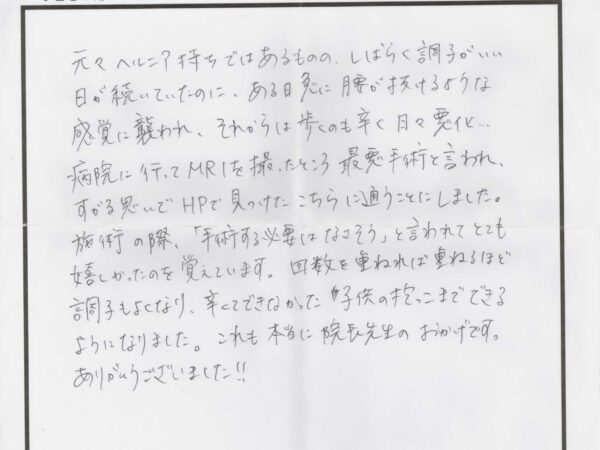 元々ヘルニア持ちではあるものの、しばらく調子がいい
日が続いていたのに、ある日急に腰が抜けるような
感覚に襲われ、それからは歩くのも辛く日々悪化…
病院に行ってMRIを撮ったところ最悪手術と言われ、
すがる思いでHPで見つけたこちらに通うことにしました。
施術の際、「手術する必要はなさそう」と言われてとても
嬉しかったのを覚えています。回数を重ねれば重ねるほど
調子もよくなり、辛くてできなかった子供の抱っこまでできる
ようになりました。これも本当に院長先生のおかげです。
ありがとうございました!!